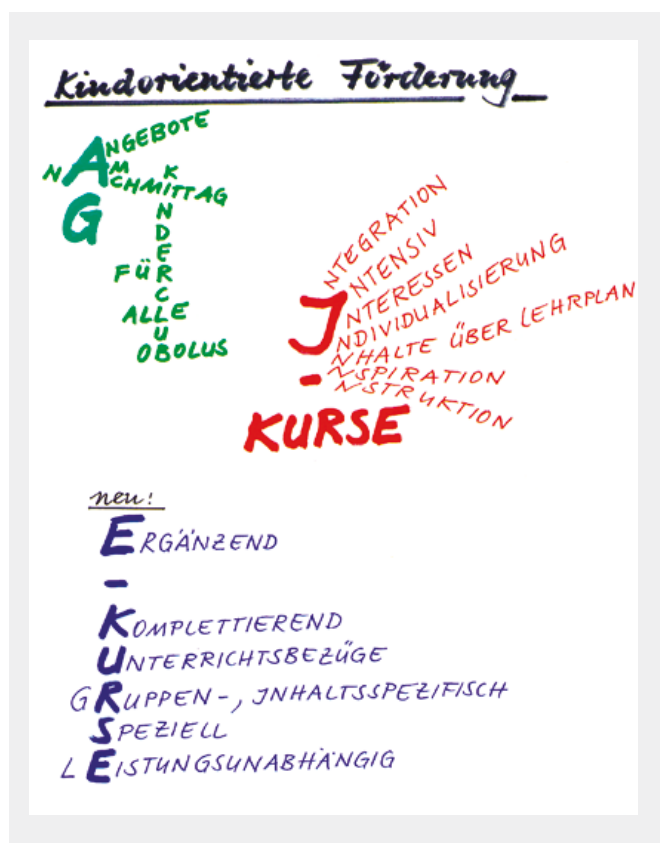 Kindorientierte Förderung
ANGEBOTE
AM
NACHMITTAG
AG
KINDERCLUB
FÜR
ALLE
OBOLUS
INTEGRATION
INTENSIV
INTERESSEN
INDIVIDUALISIERUNG
INHALTE ÜBER LEHRPLAN
INSPIRATION
INSTRUKTION
I-
KURSE
neu!
ERGÄNZEND
-
KOMPLETTIEREND
UNTERRICHTSBEZÜGE
GRUPPEN-, INHALTSSPEZIFISCH
SPEZIELL
LEISTUNGSUNABHÄNGIG